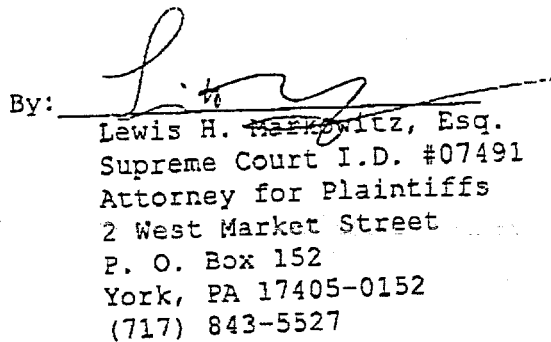 By:
Lewis H. Markowitz, Esq.
Supreme Court I.D. #07491
Attorney for Plaintiffs
2 West Market Street
P. O. Box 152
York, PA 17405-0152
(717) 843-5527